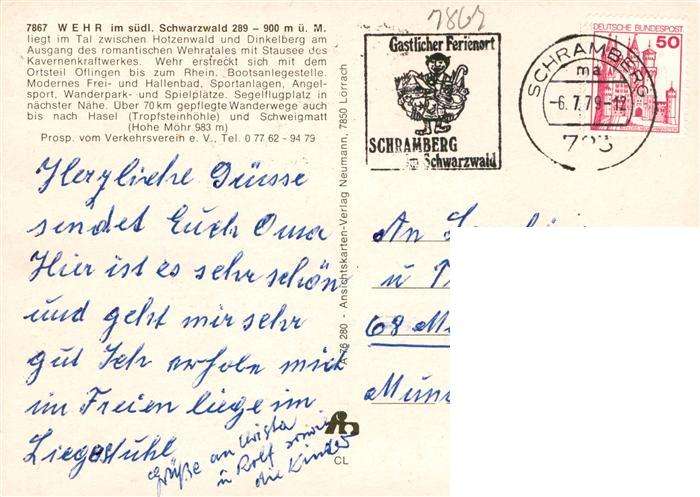 7867
7867 WEHR im südl. Schwarzwald 289 – 900 m ü. M.
liegt im Tal zwischen Hotzenwald und Dinkelberg am
Ausgang des romantischen Wehratales mit Stausee des
Kavernenkraftwerkes. Wehr erstreckt sich mit dem
Ortsteil Öflingen bis zum Rhein. Bootsanlegestelle.
Modernes Frei- und Hallenbad, Sportanlagen, Angel-
sport, Wanderpark- und Spielplätze. Segelflugplatz in
nächster Nähe. Über 70 km gepflegte Wanderwege auch
bis nach Hasel (Tropfsteinhöhle) und Schweigmatt
(Hohe Möhr 983 m)
Prosp. vom Verkehrsverein e. V., Tel. 0 77 62 - 94 79
Herzliche Grüsse
sendet Euch Oma
Hier ist es sehr schön
und geht mir sehr
gut Ich erhole mich
im Freien liege im
Liegestuhl
Grüße an Christa
u Rolf sowie
die Kinder
CL
A 76 280 - Ansichtskarten-Verlag Neumann, 7850 Lörrach
Gastlicher Ferienort
SCHRAMBERG
im Schwarzwald
SCHRAMBERG
ma
-6.7.79-12
723
DEUTSCHE BUNDESPOST
50
An
u
68